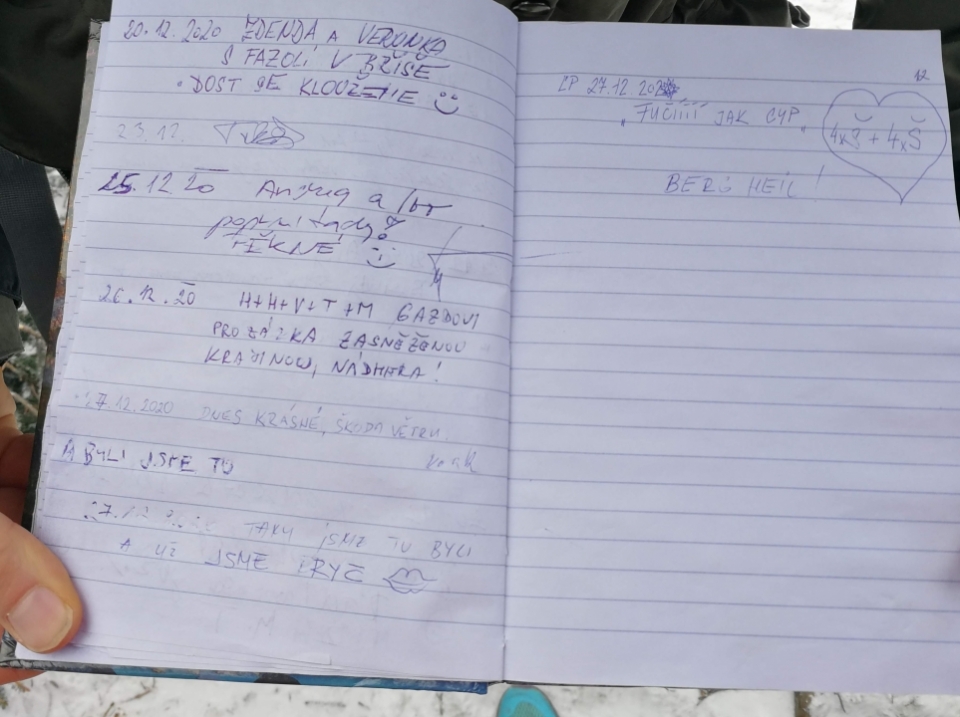 20.12.2020 ZDENDA A VERONKA
S FAZOLÍ V BŘIŠE
• DOST SE KLOUŽEME
23.12.
25.12 20 a
popřvé tudy!
26.12.20 H+H+V+T+M GAZDOVI
PROCHÁZKA ZASNĚŽENOU
KRAJINOU, NÁDHERA!
27.12.2020 DNES KRÁSNĚ, ŠKODA VĚTRU.
A BYLI JSME TU
27.12 TAKY JSME TU BYLI
A UŽ JSME PRYČ
12
27.12.202
"FUČÍÍÍÍ JAK CYP"
4x + 4xŠ
BERG HEIL!